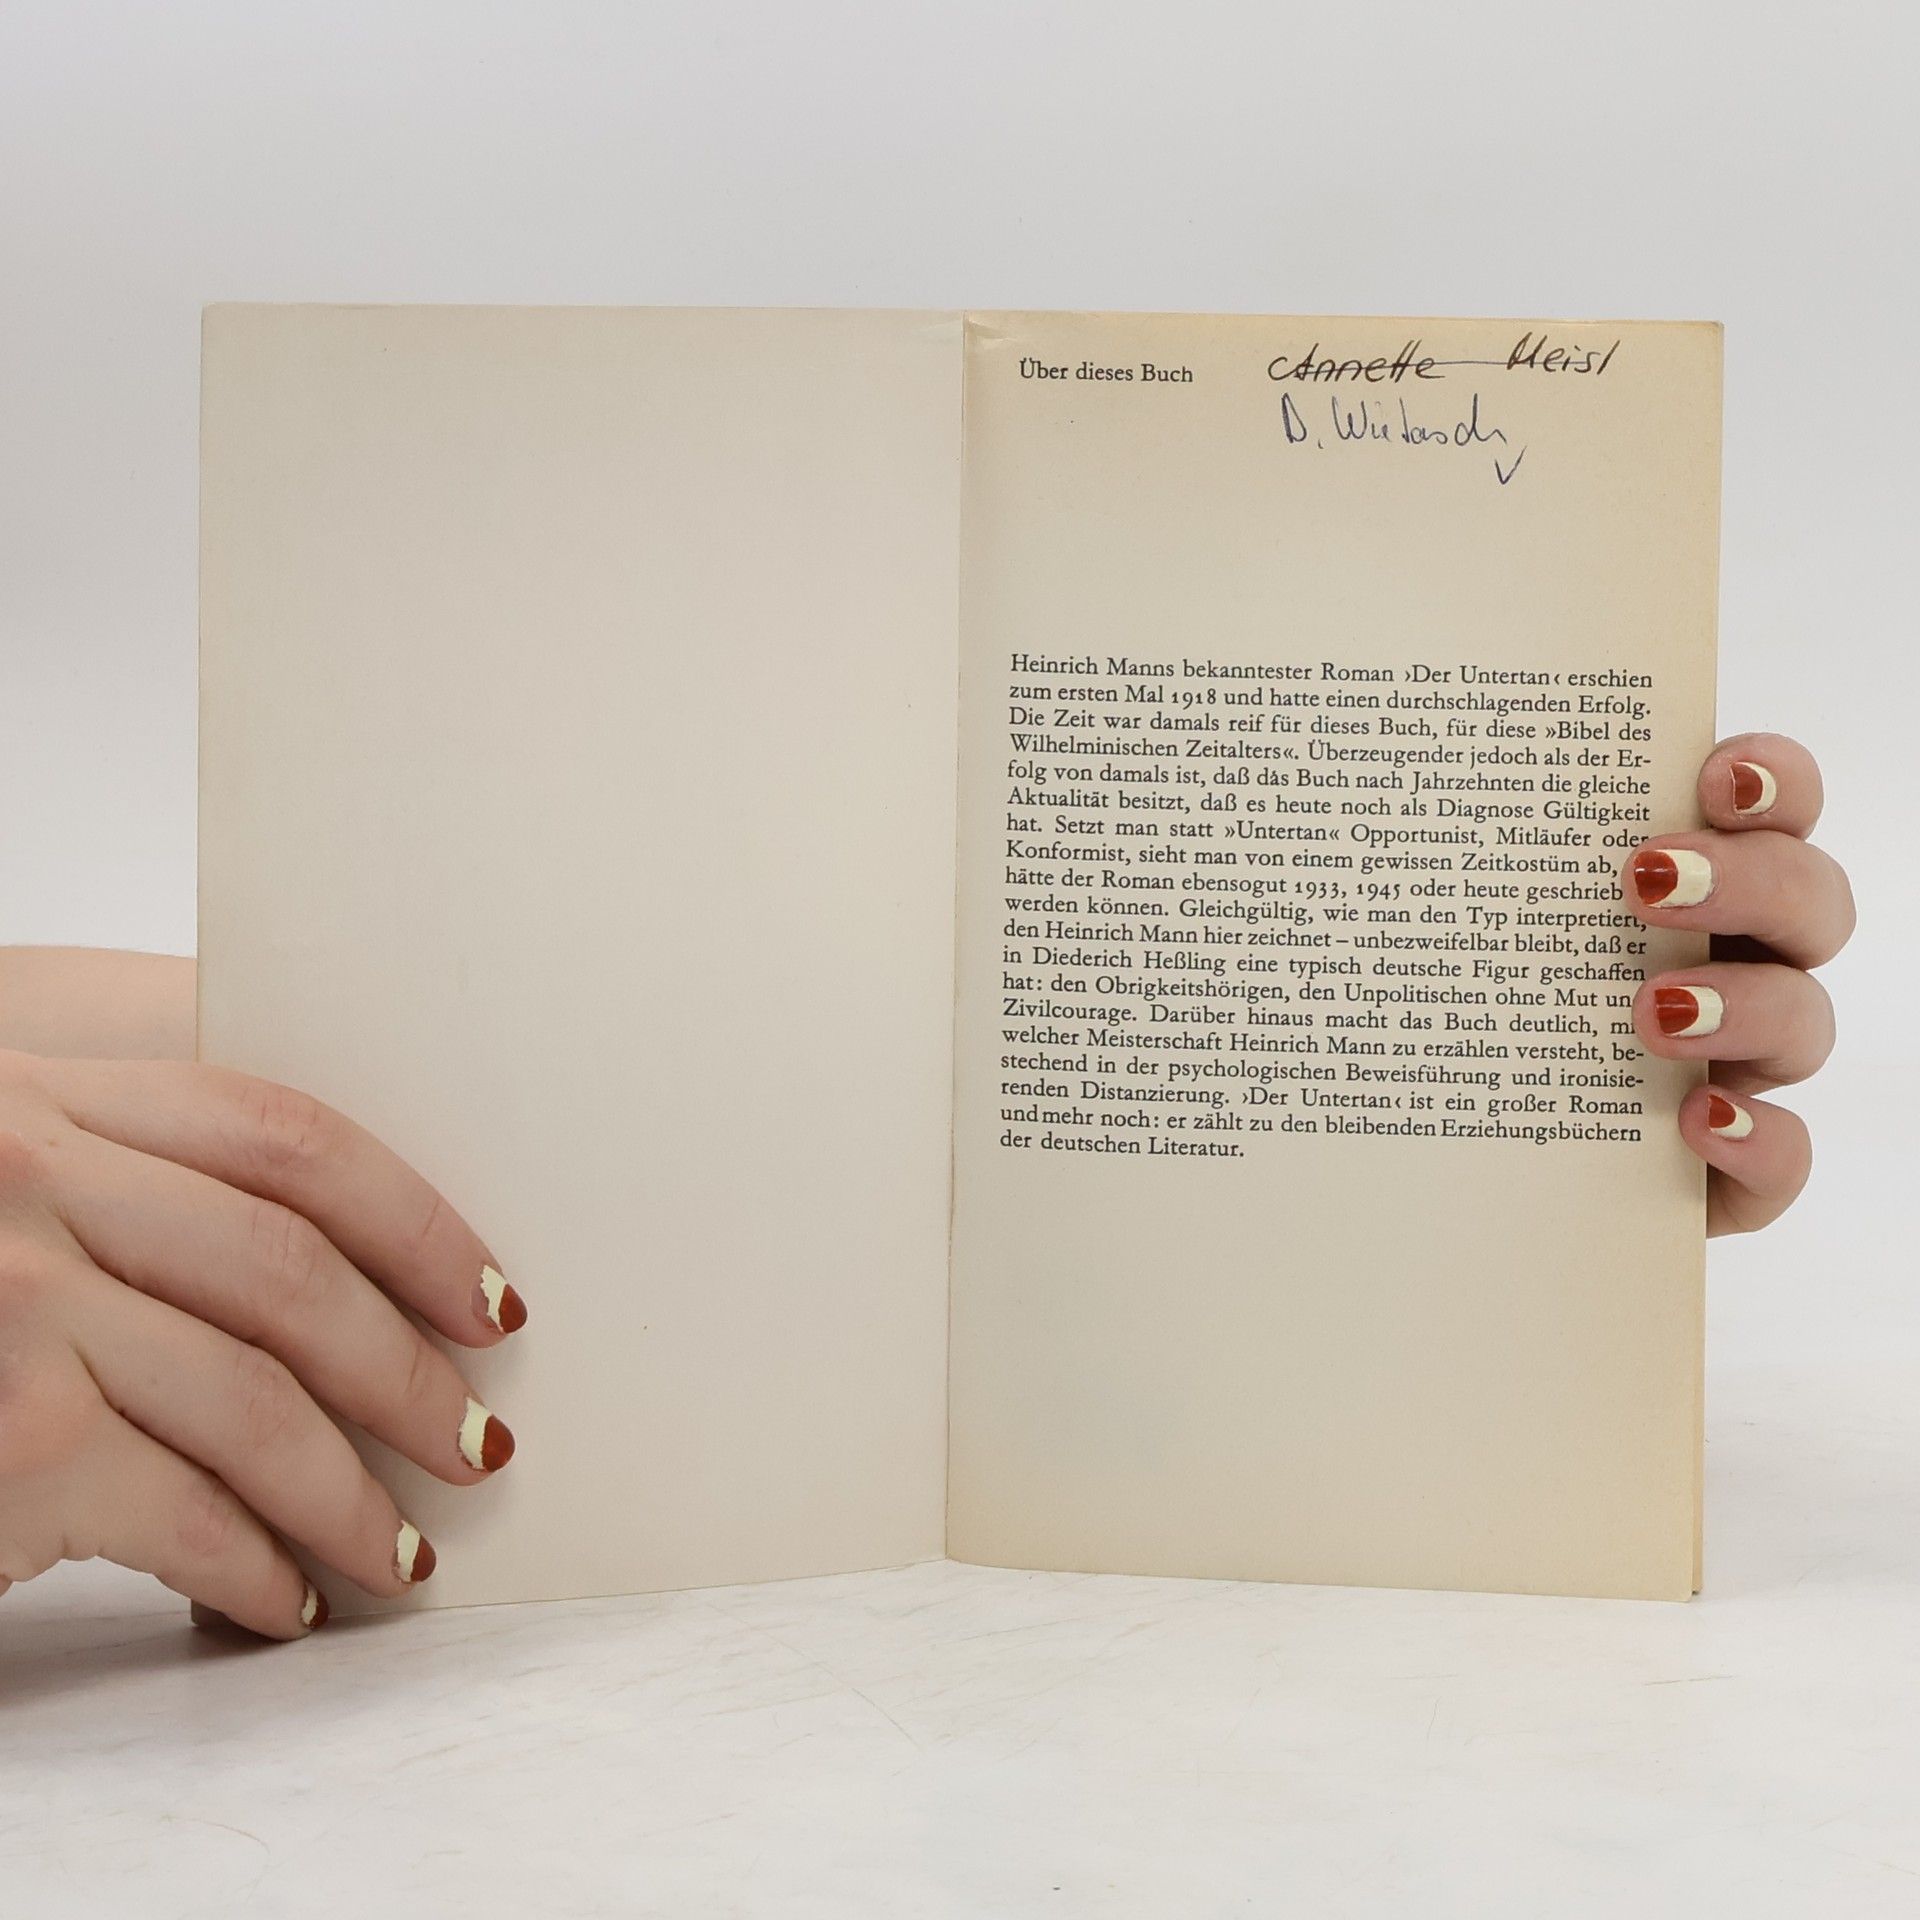 Über dieses Buch
Annette Meisl
D. Wietasch
Heinrich Manns bekanntester Roman ›Der Untertan‹ erschien
zum ersten Mal 1918 und hatte einen durchschlagenden Erfolg.
Die Zeit war damals reif für dieses Buch, für diese »Bibel des
Wilhelminischen Zeitalters«. Überzeugender jedoch als der Er-
folg von damals ist, daß das Buch nach Jahrzehnten die gleiche
Aktualität besitzt, daß es heute noch als Diagnose Gültigkeit
hat. Setzt man statt »Untertan« Opportunist, Mitläufer oder
Konformist, sieht man von einem gewissen Zeitkostüm ab,
hätte der Roman ebensogut 1933, 1945 oder heute geschrieb
werden können. Gleichgültig, wie man den Typ interpretiert,
den Heinrich Mann hier zeichnet – unbezweifelbar bleibt, daß er
in Diederich Heßling eine typisch deutsche Figur geschaffen
hat: den Obrigkeitshörigen, den Unpolitischen ohne Mut un
Zivilcourage. Darüber hinaus macht das Buch deutlich, mi
welcher Meisterschaft Heinrich Mann zu erzählen versteht, be-
stechend in der psychologischen Beweisführung und ironisie-
renden Distanzierung. ›Der Untertan‹ ist ein großer Roman
und mehr noch: er zählt zu den bleibenden Erziehungsbüchern
der deutschen Literatur.